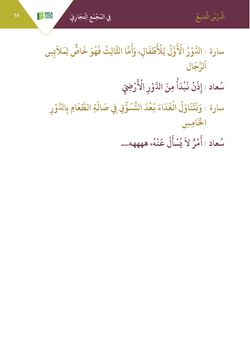 الدَّرْسُ التَّاسِعُ
فِي المَجْمَعِ التِجَارِيّ
سارة : الدَّوْرُ الأَوَّلُ لِلأَطْفَالِ، وَأَمَّا الثَّالِثُ فَهُوَ خَاصٌّ لِمَلَابِسِ
الرِّجَالِ
سُعاد : إِذَنْ نَبْدَأُ مِنَ الدَّوْرِ الْأَرْضِيِّ
سارة : وَنَتَنَاوَلُ الْغَدَاءَ بَعْدَ التَّسَوُّقِ فِي صَالَةِ الطَّعَامِ بِالدَّوْرِ
الْخَامِسِ
سُعاد : أَمْرٌ لاَ يُسْأَلُ عَنْهُ، هههههه....